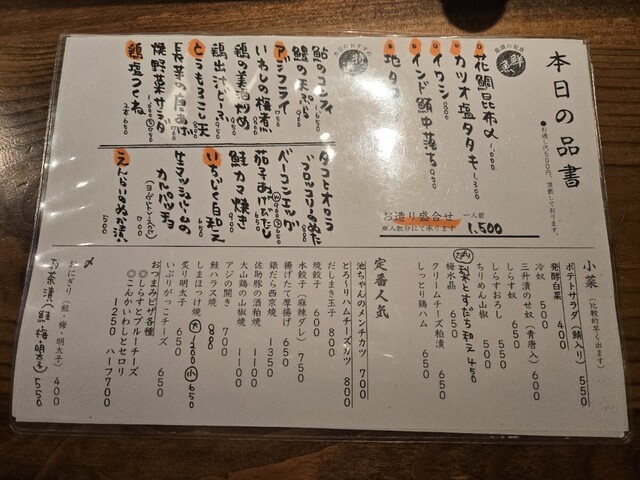 本日の品書
お通し代500円、頂戴しております。
鮮魚
花鯛昆布〆 1,000
カツオ塩タタキ 1,300
イワシ
インド鮪中落ち 950
地タコ
お造り盛合せ 一人前
※人数分にて承ります 1,500
鮎のコンフィ
鱧の天ぷら
いわしの梅煮
アジフライ
鶏の美酒炒め
とうもろこし天
長芋の唐あげ
焼野菜サラダ
鶏塩つくね
タコとオクラ
ベーコンエッグ
茄子あげびたし
鮭カマ焼き 900
いちじく白和え 650
生マッシュルームの
カルパッチョ 700
500
小菜(比較的早く出ます)
ポテトサラダ(鯖入り) 550
発酵白菜 400
冷奴 500
三升漬のせ奴(青唐入) 600
しらす奴 650
しらすおろし 550
ちりめん山椒 500
梨とすだち和え 450
梅水晶 650
クリームチーズ粕漬 650
しっとり鶏ハム 650
定番人気
池ちゃんのメンチカツ 700
とろ~りハムチーズカツ 800
だしまき玉子 800
焼餃子 600
水餃子(麻辣ダレ) 750
揚げたて厚揚げ 650
銀だら西京焼 1350
佐助豚の酒粕焼 1100
大山鶏の山椒焼 1100
アジの開き 700
鮭ハラス焼 800
しまほっけ焼 大 1300 小 650
炙り明太子 650
いぶりがっこチーズ 650
おつまみピザ各種
◎しらすとブルーチーズ
◎こんかいわしとセロリ
1250 ハーフ700
〆
おにぎり(鮭・梅・明太子) 400
お茶漬(鮭 梅 明太子) 550